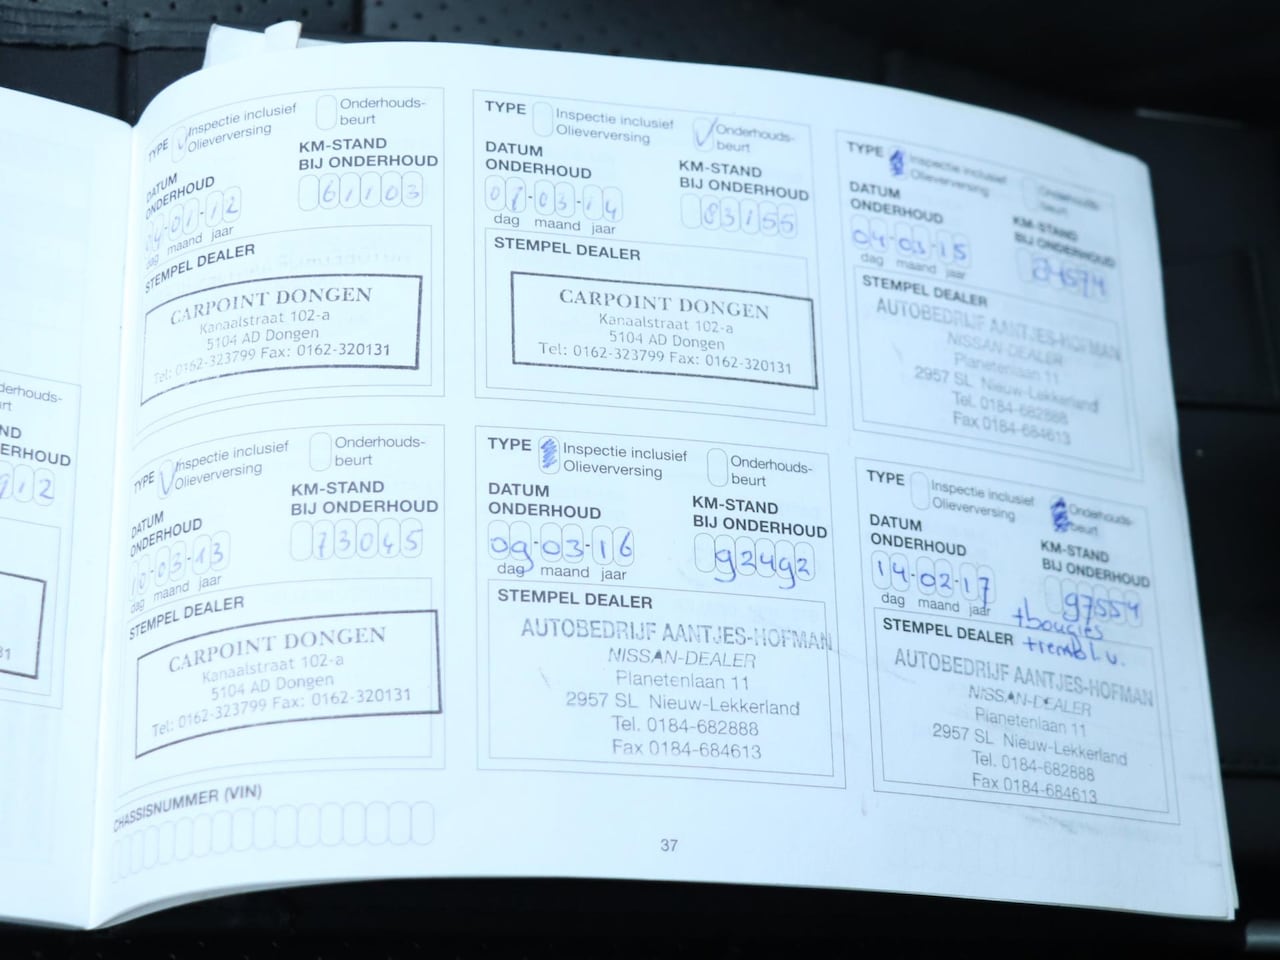 TYPE Inspectie inclusief Olieverversing
Onderhouds-
beurt
DATUM
ONDERHOUD
04-01-12
dag maand jaar
KM-STAND
BIJ ONDERHOUD
61103
STEMPEL DEALER
CARPOINT DONGEN
Kanaalstraat 102-a
5104 AD Dongen
Tel: 0162-323799 Fax: 0162-320131
TYPE Inspectie inclusief Olieverversing
Onderhouds-
beurt
DATUM
ONDERHOUD
10-03-13
dag maand jaar
KM-STAND
BIJ ONDERHOUD
73045
STEMPEL DEALER
CARPOINT DONGEN
Kanaalstraat 102-a
5104 AD Dongen
Tel: 0162-323799 Fax: 0162-320131
CHASSISNUMMER (VIN)
TYPE Inspectie inclusief Olieverversing
Onderhouds-
beurt
DATUM
ONDERHOUD
-03-14
dag maand jaar
KM-STAND
BIJ ONDERHOUD
83155
STEMPEL DEALER
CARPOINT DONGEN
Kanaalstraat 102-a
5104 AD Dongen
Tel: 0162-323799 Fax: 0162-320131
TYPE Inspectie inclusief Olieverversing
Onderhouds-
beurt
DATUM
ONDERHOUD
09-03-16
dag maand jaar
KM-STAND
BIJ ONDERHOUD
92492
STEMPEL DEALER
AUTOBEDRIJF AANTJES-HOFMAN
NISSAN-DEALER
Planetenlaan 11
2957 SL Nieuw-Lekkerland
Tel. 0184-682888
Fax 0184-684613
37
TYPE Inspectie inclusief Olieverversing
Onderhouds-
beurt
DATUM
ONDERHOUD
04-03-15
dag maand jaar
KM-STAND
BIJ ONDERHOUD
STEMPEL DEALER
AUTOBEDRIJF AANTJES-HOFMAN
NISSAN-DEALER
Planetenlaan 11
2957 SL Nieuw-Lekkerland
Tel. 0184-682888
Fax 0184-684613
TYPE Inspectie inclusief Olieverversing
Onderhouds-
beurt
DATUM
ONDERHOUD
14-02-17
dag maand jaar
KM-STAND
BIJ ONDERHOUD
97554
+bougies
+rembl.v.
STEMPEL DEALER
AUTOBEDRIJF AANTJES-HOFMAN
NISSAN-DEALER
Planetenlaan 11
2957 SL Nieuw-Lekkerland
Tel. 0184-682888
Fax 0184-684613